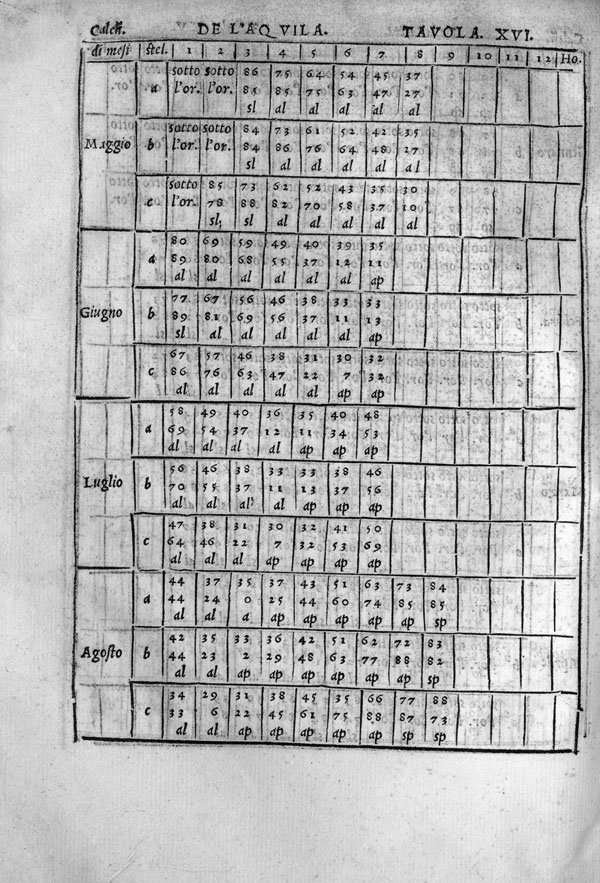 DE L'AQVILA. TAVOLA. XVI.
di mesi stel. 1 2 3 4 5 6 7 8 9 10 11 12 Ho.
sotto sotto 86 75 64 54 45 37
a l'or. l'or. 85 85 75 63 47 27
sl al al al al al
sotto sotto 84 73 61 52 42 35
Maggio b l'or. l'or. 84 86 76 64 48 27
sl al al al al al
sotto 85 73 62 52 43 35 30
c l'or. 78 88 82 70 58 37 10
sl sl al al al al al
80 69 59 49 40 39 35
a 89 80 68 55 37 12 11
al al al al al al ap
77 67 56 46 38 33 33
Giugno b 89 81 69 56 37 11 13
sl al al al al al ap
67 57 46 38 31 30 32
c 86 76 63 47 22 7 32
al al al al al ap ap
58 49 40 36 35 40 48
a 69 54 37 12 11 34 53
al al al al ap ap ap
56 46 38 33 33 38 46
Luglio b 70 55 37 11 13 37 56
al al al al ap ap ap
47 38 31 30 32 41 50
c 64 46 22 7 32 53 69
al al al ap ap ap ap
44 37 35 37 43 51 63 73 84
a 44 24 0 25 44 60 74 85 85
al al a ap ap ap ap ap sp
42 35 33 36 42 51 62 72 83
Agosto b 44 23 2 29 48 63 77 88 82
al al ap ap ap ap ap ap sp
34 29 31 38 45 35 66 77 88
c 33 6 22 45 61 75 88 87 73
al al ap ap ap ap ap sp sp